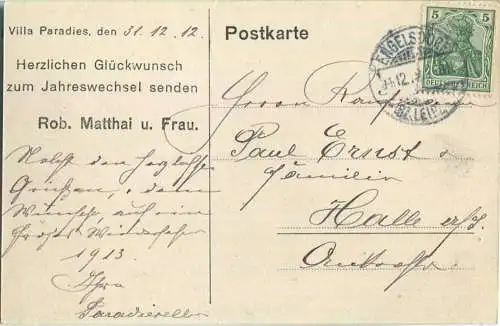 Villa Paradies, den 31.12.12.
Herzlichen Glückwunsch
zum Jahreswechsel senden
Rob. Matthai u. Frau.
Nebst den herzlichsten
Grüßen, dem
Wunsch, auf ein
Wiedersehen
1913
Ihre
Postkarte
5 5
DEUTSCHES REICH
ENGELSDORF
12.
BZ. LEIPZ
Herrn Kaufmann
Paul Ernst u
Familie
Halle a/S.